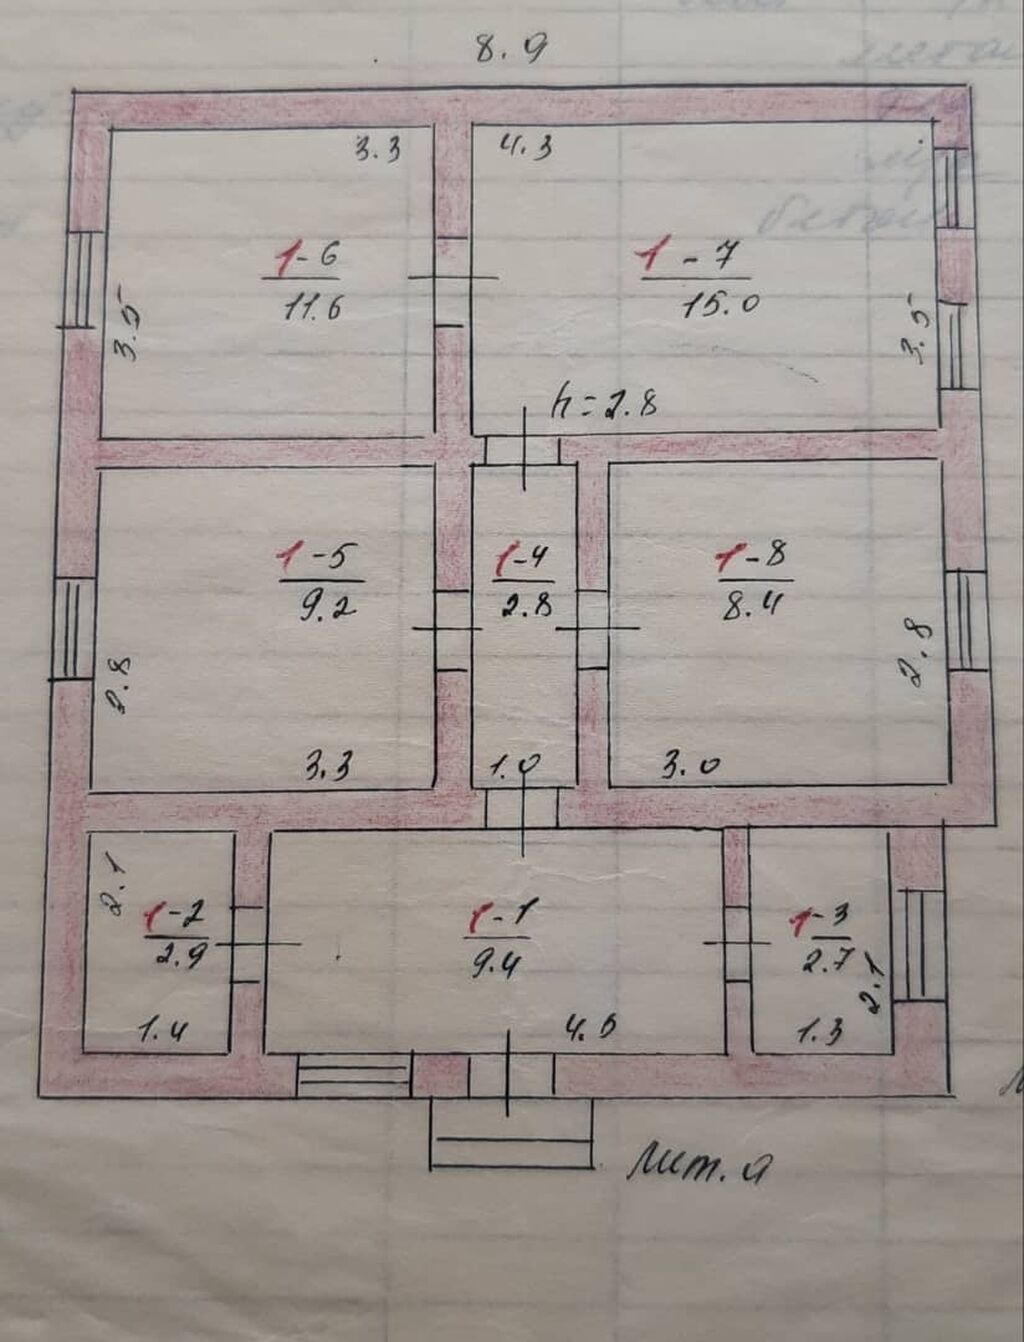 8.9
3.3
4.3
1-6
11.6
1-7
15.0
3.5
3.5
h=2.8
1-5
9.2
1-4
2.8
1-8
8.4
2.8
2.8
3.3
1.0
3.0
2.1
1-2
2.9
1-1
9.4
1-3
2.7
2.1
1.4
1.3
Лит. а